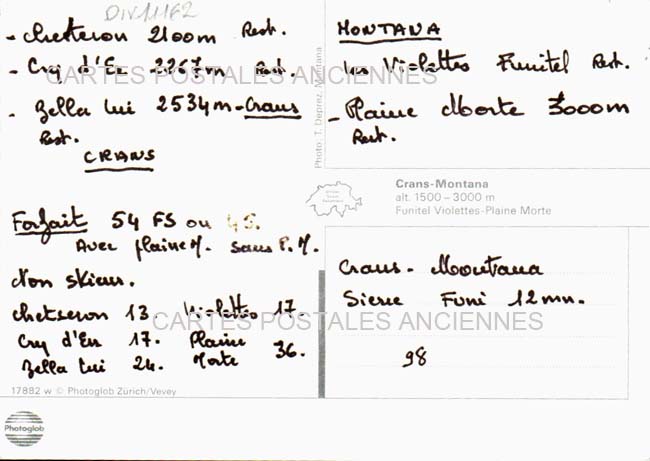 DIV11162
- Chetseron 2100m Rest.
- Cry d'Er 2267m Rest.
- Bella Lui 2534m - Crans
Rest.
CRANS
MONTANA
Les Violettes Funitel Rest.
- Plaine Morte 3000m
Rest.
CARTES POSTALES ANCIENNES
Photo: T. Deprez, Montana
Crans-Montana
alt. 1500 – 3000 m
Funitel Violettes-Plaine Morte
Forfait 54 FS ou 4S.
Avec plaine M. sans P.M.
Non Skieur.
Chetseron 13. Violettes 17.
Cry d'Er 17. Plaine
Bella Lui 24. Morte 36.
Crans - Montana
Sierre Funi 12mn.
98
CARTES POSTALES ANCIENNES
17882 w © Photoglob Zürich/Vevey
Photoglob